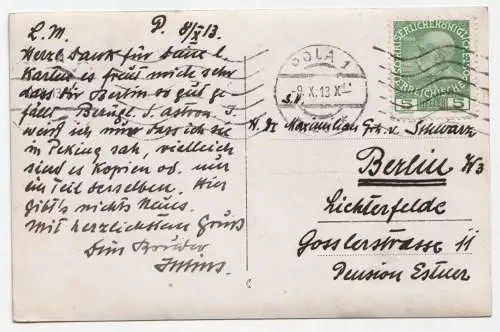 L. M. P. 8/X 13.
Herzl. Dank für Deine l.
Karten es freut mich sehr
dass dir Berlin so gut ge-
fällt. Bezügl. d. astron. I.
weiß ich nur dass ich sie
in Peking sah, vielleich
sind es Kopien od. nur
ein Teil derselben. Hier
gibt's nichts Neues.
Mit herzlichstem Gruß
Dein Bruder
Julius.
POLA 1
9. X. 13
5 5
S. H.
H. Dr. Maximilian v. Schwarz
Berlin W3
Lichterfelde
Gosslerstrasse 11
Pension Estner